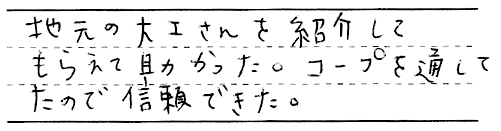 地元の大工さんを紹介して
もらえて助かった。コープを通して
たので信頼できた。